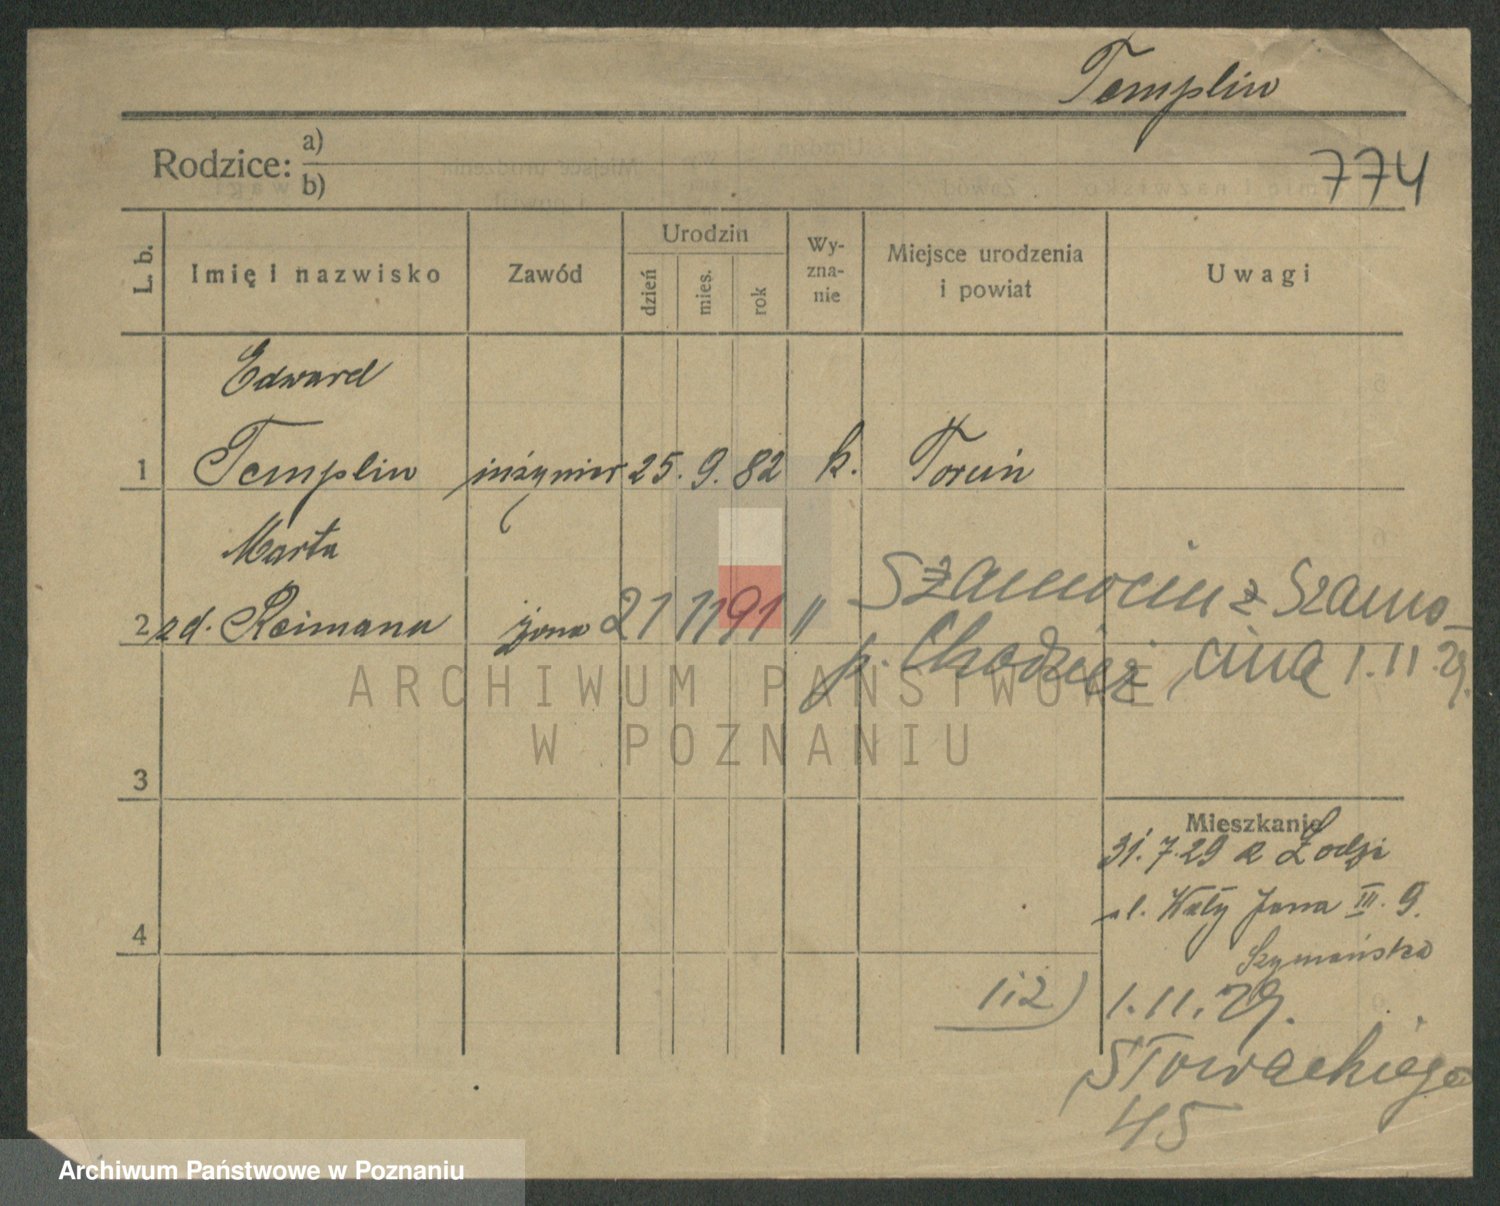 Templin
Rodzice: a)
b)
774
L. b.
Imię i nazwisko
Zawód
Urodzin
dzień
mies.
rok
Wy-
zna-
nie
Miejsce urodzenia
i powiat
Uwagi
Edward
1 Templin inżynier 25. 9. 82 k. Toruń
Marta
2 zd. Reimann żona 21 11 91 " Szamocin z Szamo-
p. Chodzież cina 1.11.29.
3
Mieszkanie
31.7.29 z Łodzi
4 ul. Wały Jana III. 9.
Szymańska
1 i 2) 1.11.29.
Słowackiego
45
ARCHIWUM PAŃSTWOWE
W POZNANIU
Archiwum Państwowe w Poznaniu